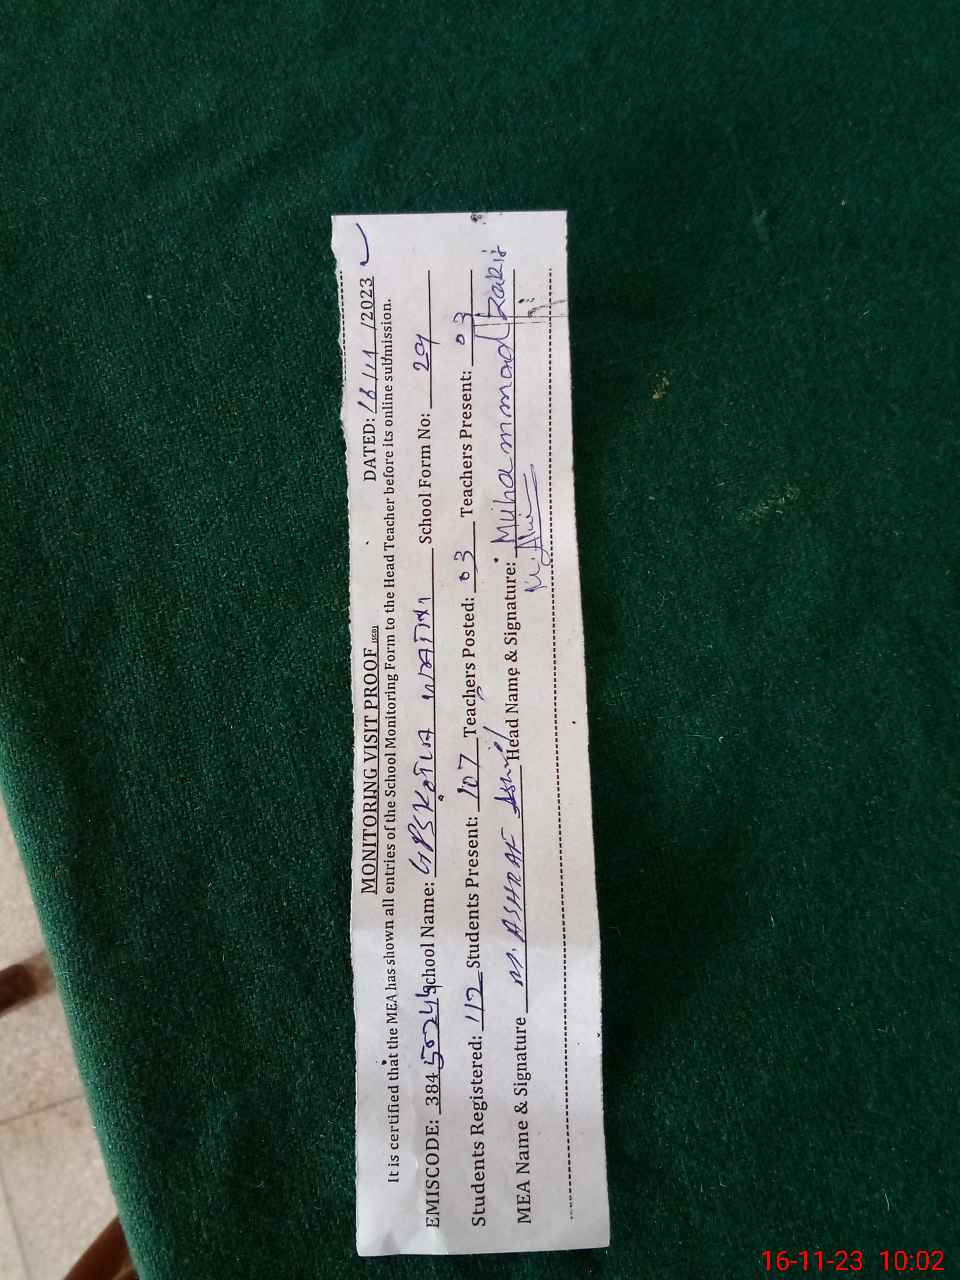 MONITORING VISIT PROOF (SCD) DATED: 16/11/2023
It is certified that the MEA has shown all entries of the School Monitoring Form to the Head Teacher before its online submission.
EMISCODE: 38450244 School Name: GPS KOTLA School Form No: 29
Students Registered: 112 Students Present: 107 Teachers Posted: 03 Teachers Present: 03
MEA Name & Signature M. ASHRAF Head Name & Signature: Muhammad
16-11-23 10:02